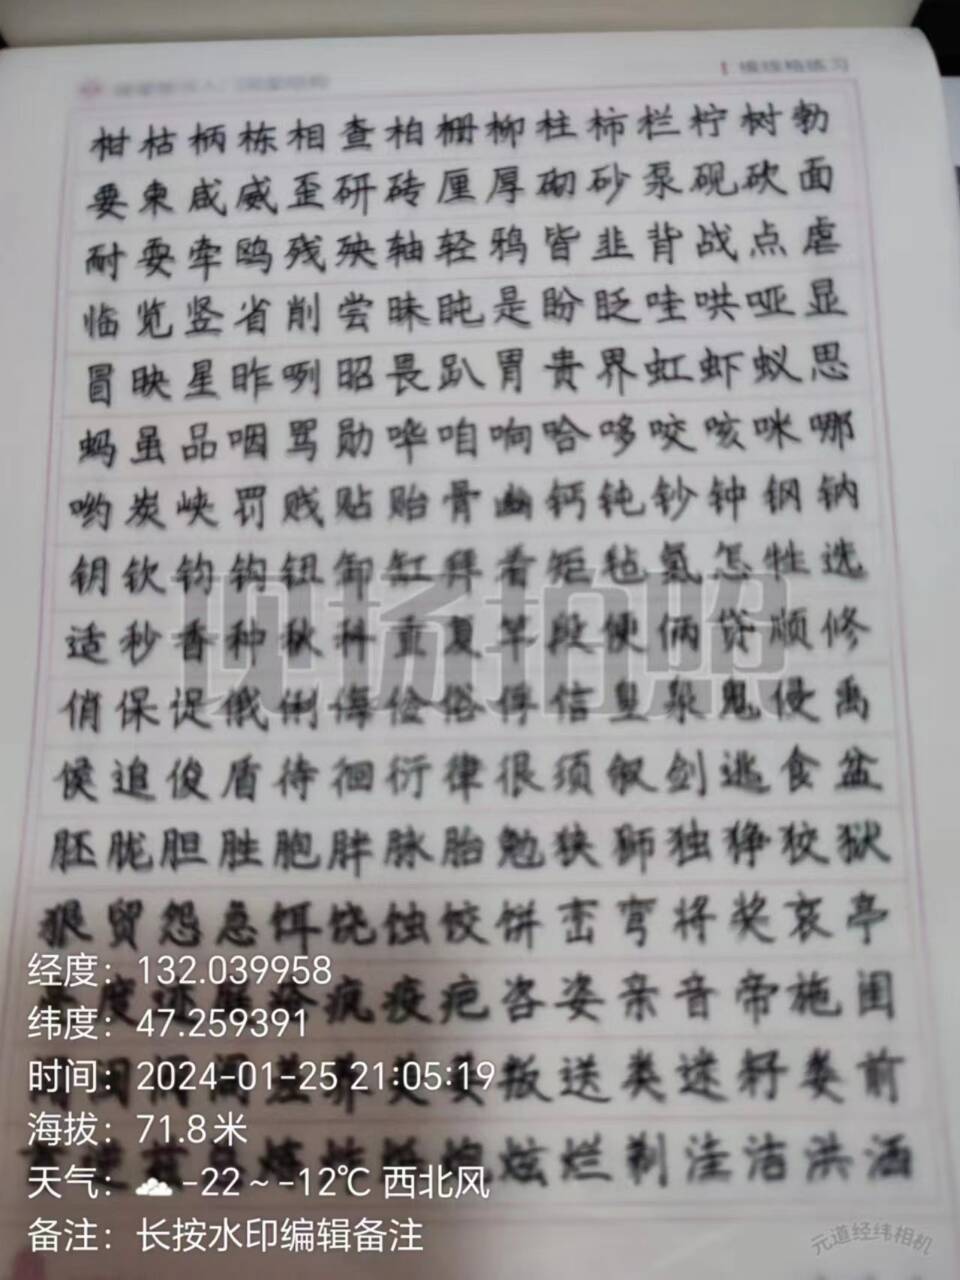 横线格练习
柑枯柄栋相查柏栅柳柱柿栏柠树勃
要柬咸威歪研砖厘厚砌砂泵砚砍面
耐耍牵鸥残殃轴轻鸦皆韭背战点虐
临览竖省削尝昧盹是盼眨哇哄哑显
冒映星昨咧昭畏趴胃贵界虹虾蚁思
蚂虽品咽骂勋哗咱响哈哆咬咳咪哪
哟炭峡罚贱贴贻骨幽钙钝钞钟钢钠
钥钦钧钩钮卸缸拜看矩毡氢怎牲选
适秒香种秋科重复竿段便俩贷顺修
俏保促俄俐侮俭俗俘信皇泉鬼侵禹
侯追俊盾待徊衍律很须叙剑逃食盆
胚胧胆胜胞胖脉胎勉狭狮独狰狡狱
狠贸怨急饵饶蚀饺饼峦弯将奖哀亭
度疯疫疤咨姿亲音帝施闺
闻差养叛送类迷籽娄前
炫烂剃洼洁洪洒
现场拍照
经度：132.039958
纬度：47.259391
时间：2024-01-25 21:05:19
海拔：71.8米
天气：-22～-12℃ 西北风
备注：长按水印编辑备注
元道经纬相机